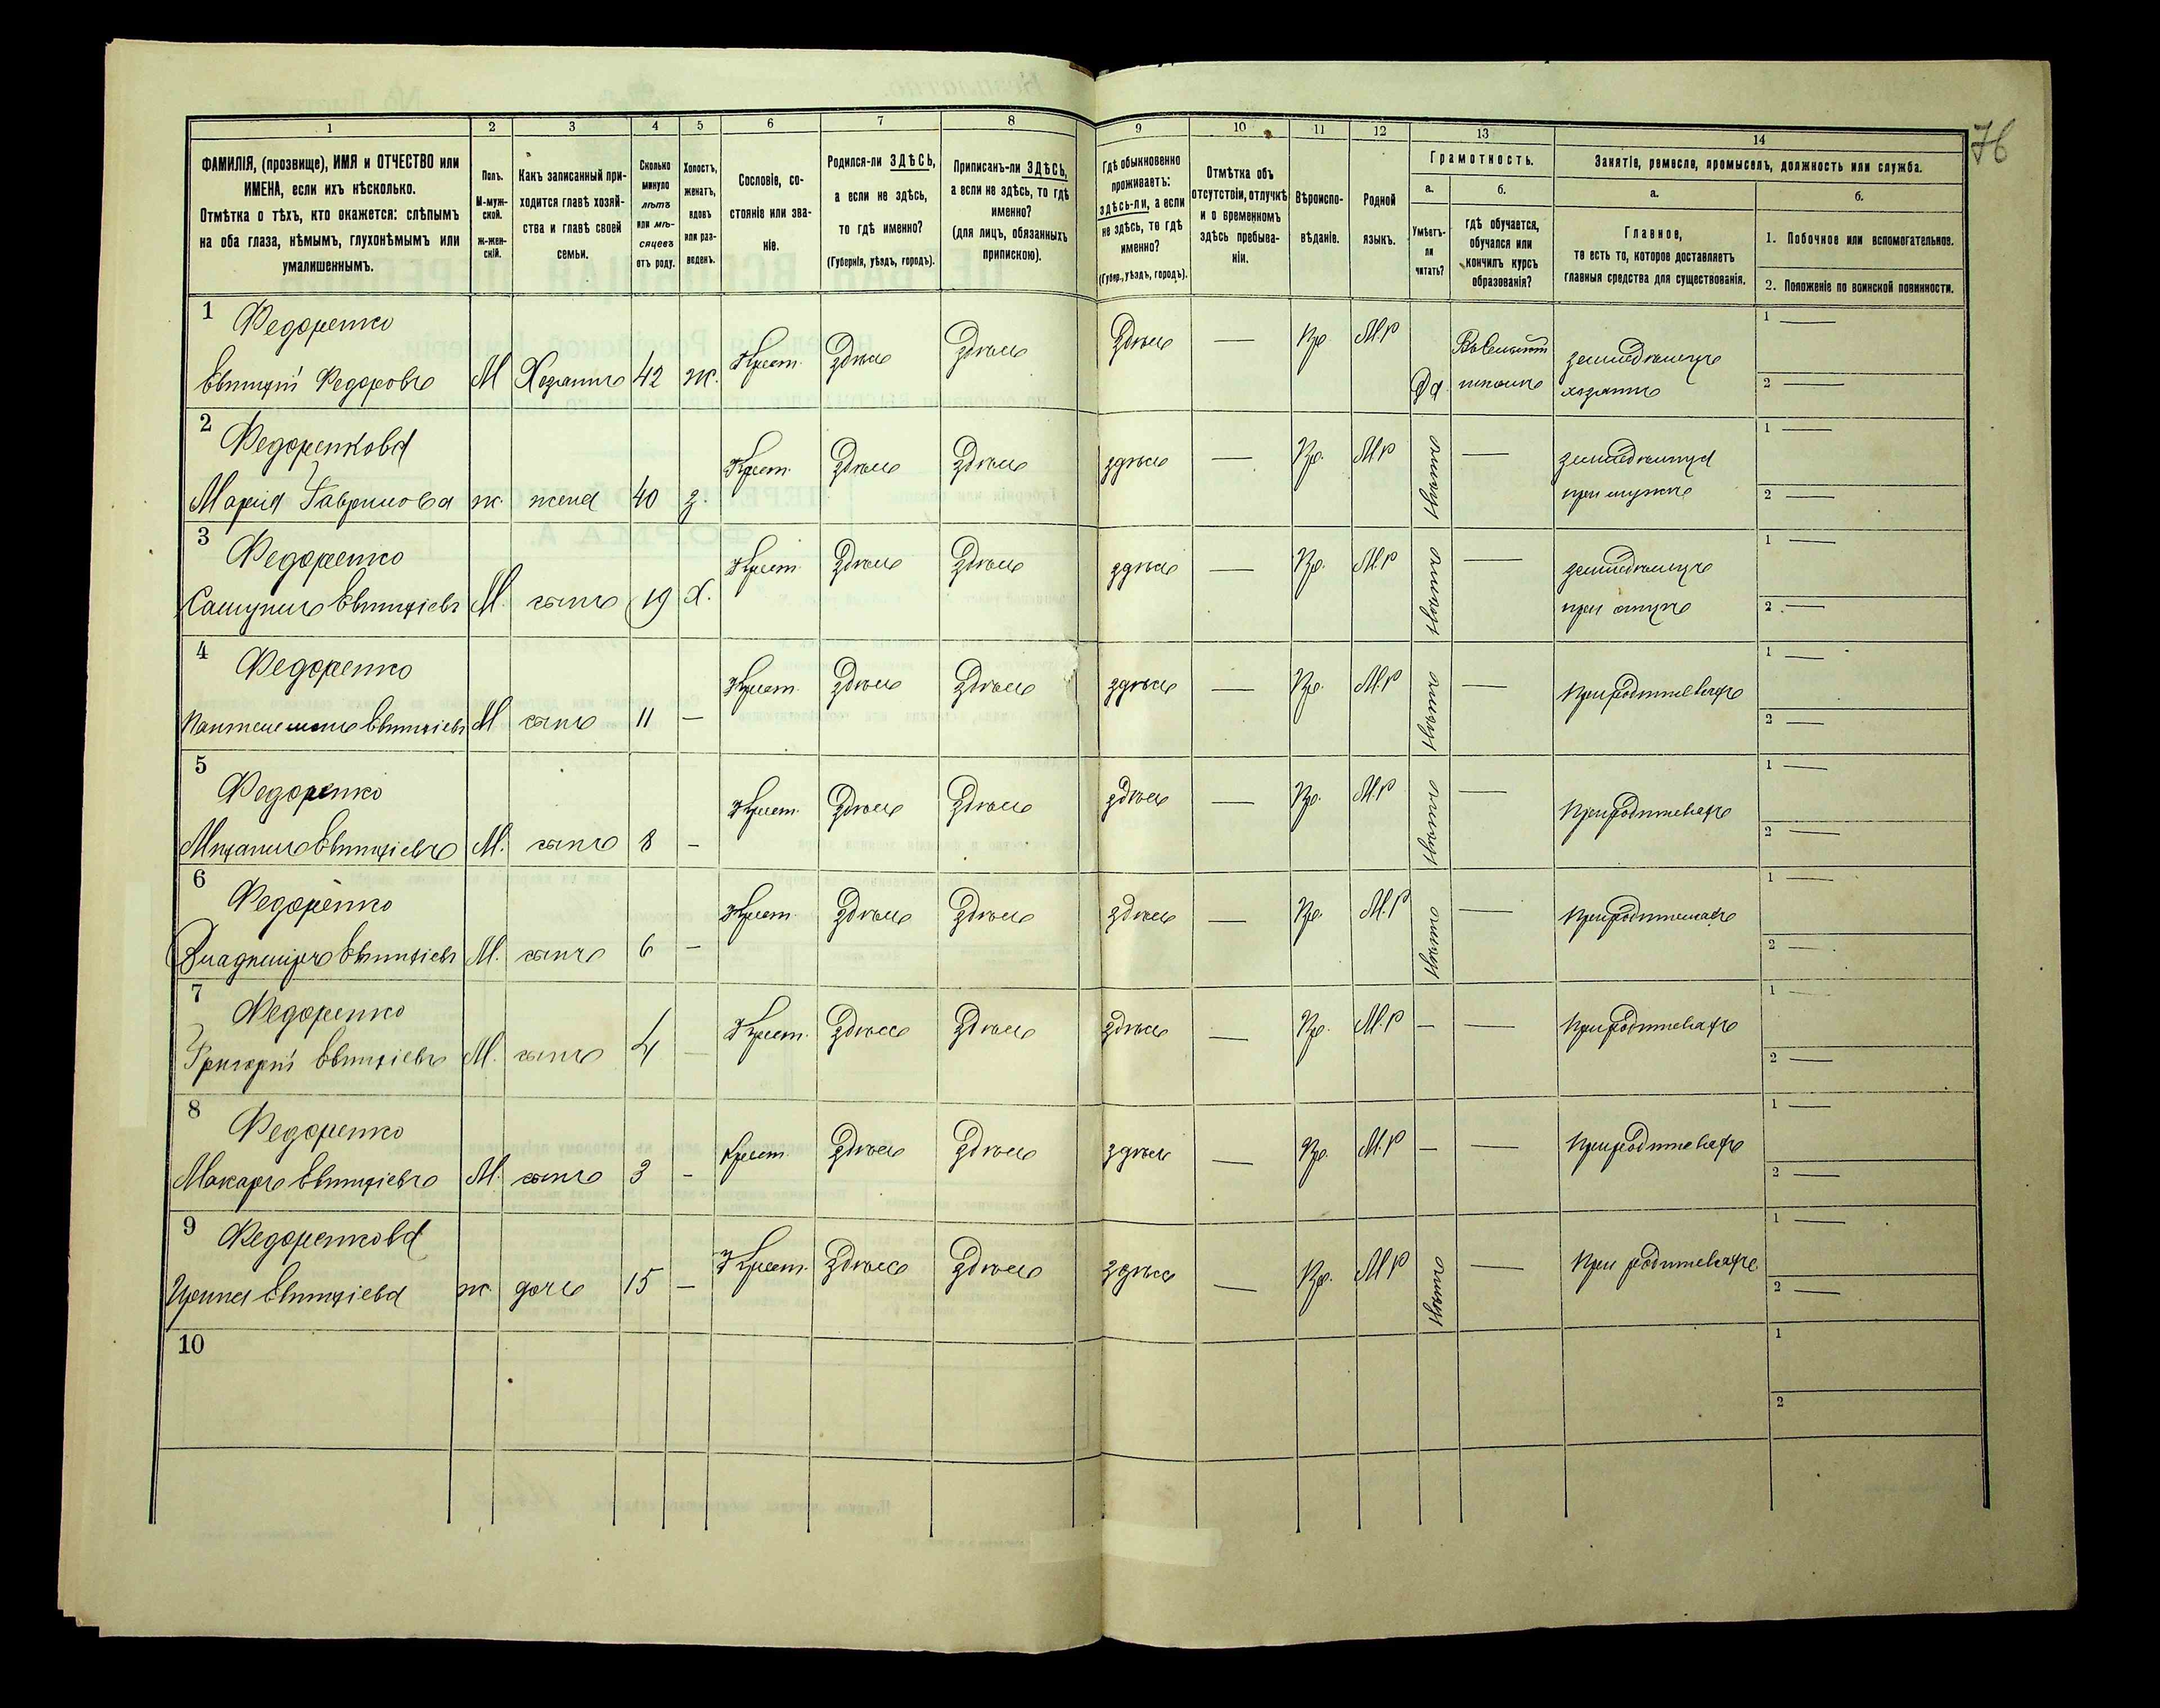 76
1
2
3
4
5
6
7
8
9
10
11
12
13
14
ФАМИЛІЯ, (прозвище), ИМЯ и ОТЧЕСТВО или
ИМЕНА, если ихъ нѣсколько.
Отмѣтка о тѣхъ, кто окажется: слѣпымъ
на оба глаза, нѣмымъ, глухонѣмымъ или
умалишеннымъ.
Полъ.
М-муж-
ской.
Ж-жен-
скій.
Какъ записанный при-
ходится главѣ хозяй-
ства и главѣ своей
семьи.
Сколько
минуло
лѣтъ
или мѣ-
сяцевъ
отъ роду.
Холостъ,
женатъ,
вдовъ
или раз-
веденъ.
Сословіе, со-
стояніе или зва-
ніе.
Родился-ли ЗДѢСЬ,
а если не здѣсь,
то гдѣ именно?
(Губернія, уѣздъ, городъ).
Приписанъ-ли ЗДѢСЬ,
а если не здѣсь, то гдѣ
именно?
(для лицъ, обязанныхъ
припискою).
Гдѣ обыкновенно
проживаетъ:
здѣсь-ли, а если
не здѣсь, то гдѣ
именно?
(Губер., уѣздъ, городъ).
Отмѣтка объ
отсутствіи, отлучкѣ
и о временномъ
здѣсь пребыва-
ніи.
Вѣроиспо-
вѣданіе.
Родной
языкъ.
Грамотность.
а.
Умѣетъ-
ли
читать?
б.
гдѣ обучается,
обучался или
кончилъ курсъ
образованія?
Занятіе, ремесло, промыселъ, должность или служба.
а.
Главное,
то есть то, которое доставляетъ
главныя средства для существованія.
б.
1. Побочное или вспомогательное.
2. Положеніе по воинской повинности.
1
Федоренко
Евтихій Федоровъ М Хозяинъ 42 ж. Крест. Здѣсь Здѣсь Здѣсь — Пр. М.р Да
школѣ
земледѣлецъ
хозяинъ
1 —
2 —
2
Федоренкова
Марія Гаврилова ж. жена 40 з. Крест. Здѣсь Здѣсь здѣсь — Пр. М.р неграмот —
при мужѣ
1 —
2 —
3
Федоренко
Самуилъ Евтихіевъ М. сынъ 19 х. Крест. Здѣсь Здѣсь здѣсь — Пр. М.р —
земледѣлецъ
при отцѣ
1 —
2 —
4
Федоренко
Евтихіевъ М сынъ 11 — Крест. Здѣсь Здѣсь здѣсь — Пр. М.р —
При родителяхъ
1 —
2 —
5
Федоренко
Михаилъ Евтихіевъ М. сынъ 8 — Крест. Здѣсь Здѣсь здѣсь — Пр. М.р —
При родителяхъ
1 —
2 —
6
Федоренко
Владимиръ Евтихіевъ М. сынъ 6 — Крест. Здѣсь Здѣсь здѣсь — Пр. М.р —
При родителяхъ
1 —
2 —
7
Федоренко
Григорій Евтихіевъ М. сынъ 4 — Крест. Здѣсь Здѣсь здѣсь — Пр. М.р — —
При родителяхъ
1 —
2 —
8
Федоренко
Макаръ Евтихіевъ М. сынъ 3 - Крест. Здѣсь Здѣсь здѣсь — Пр. М.р — —
При родителяхъ
1 —
2 —
9
Федоренкова
Евтихіева ж дочь 15 — Крест. Здѣсь Здѣсь здѣсь — Пр. М.р —
При родителяхъ
1 —
2 —
10
1
2